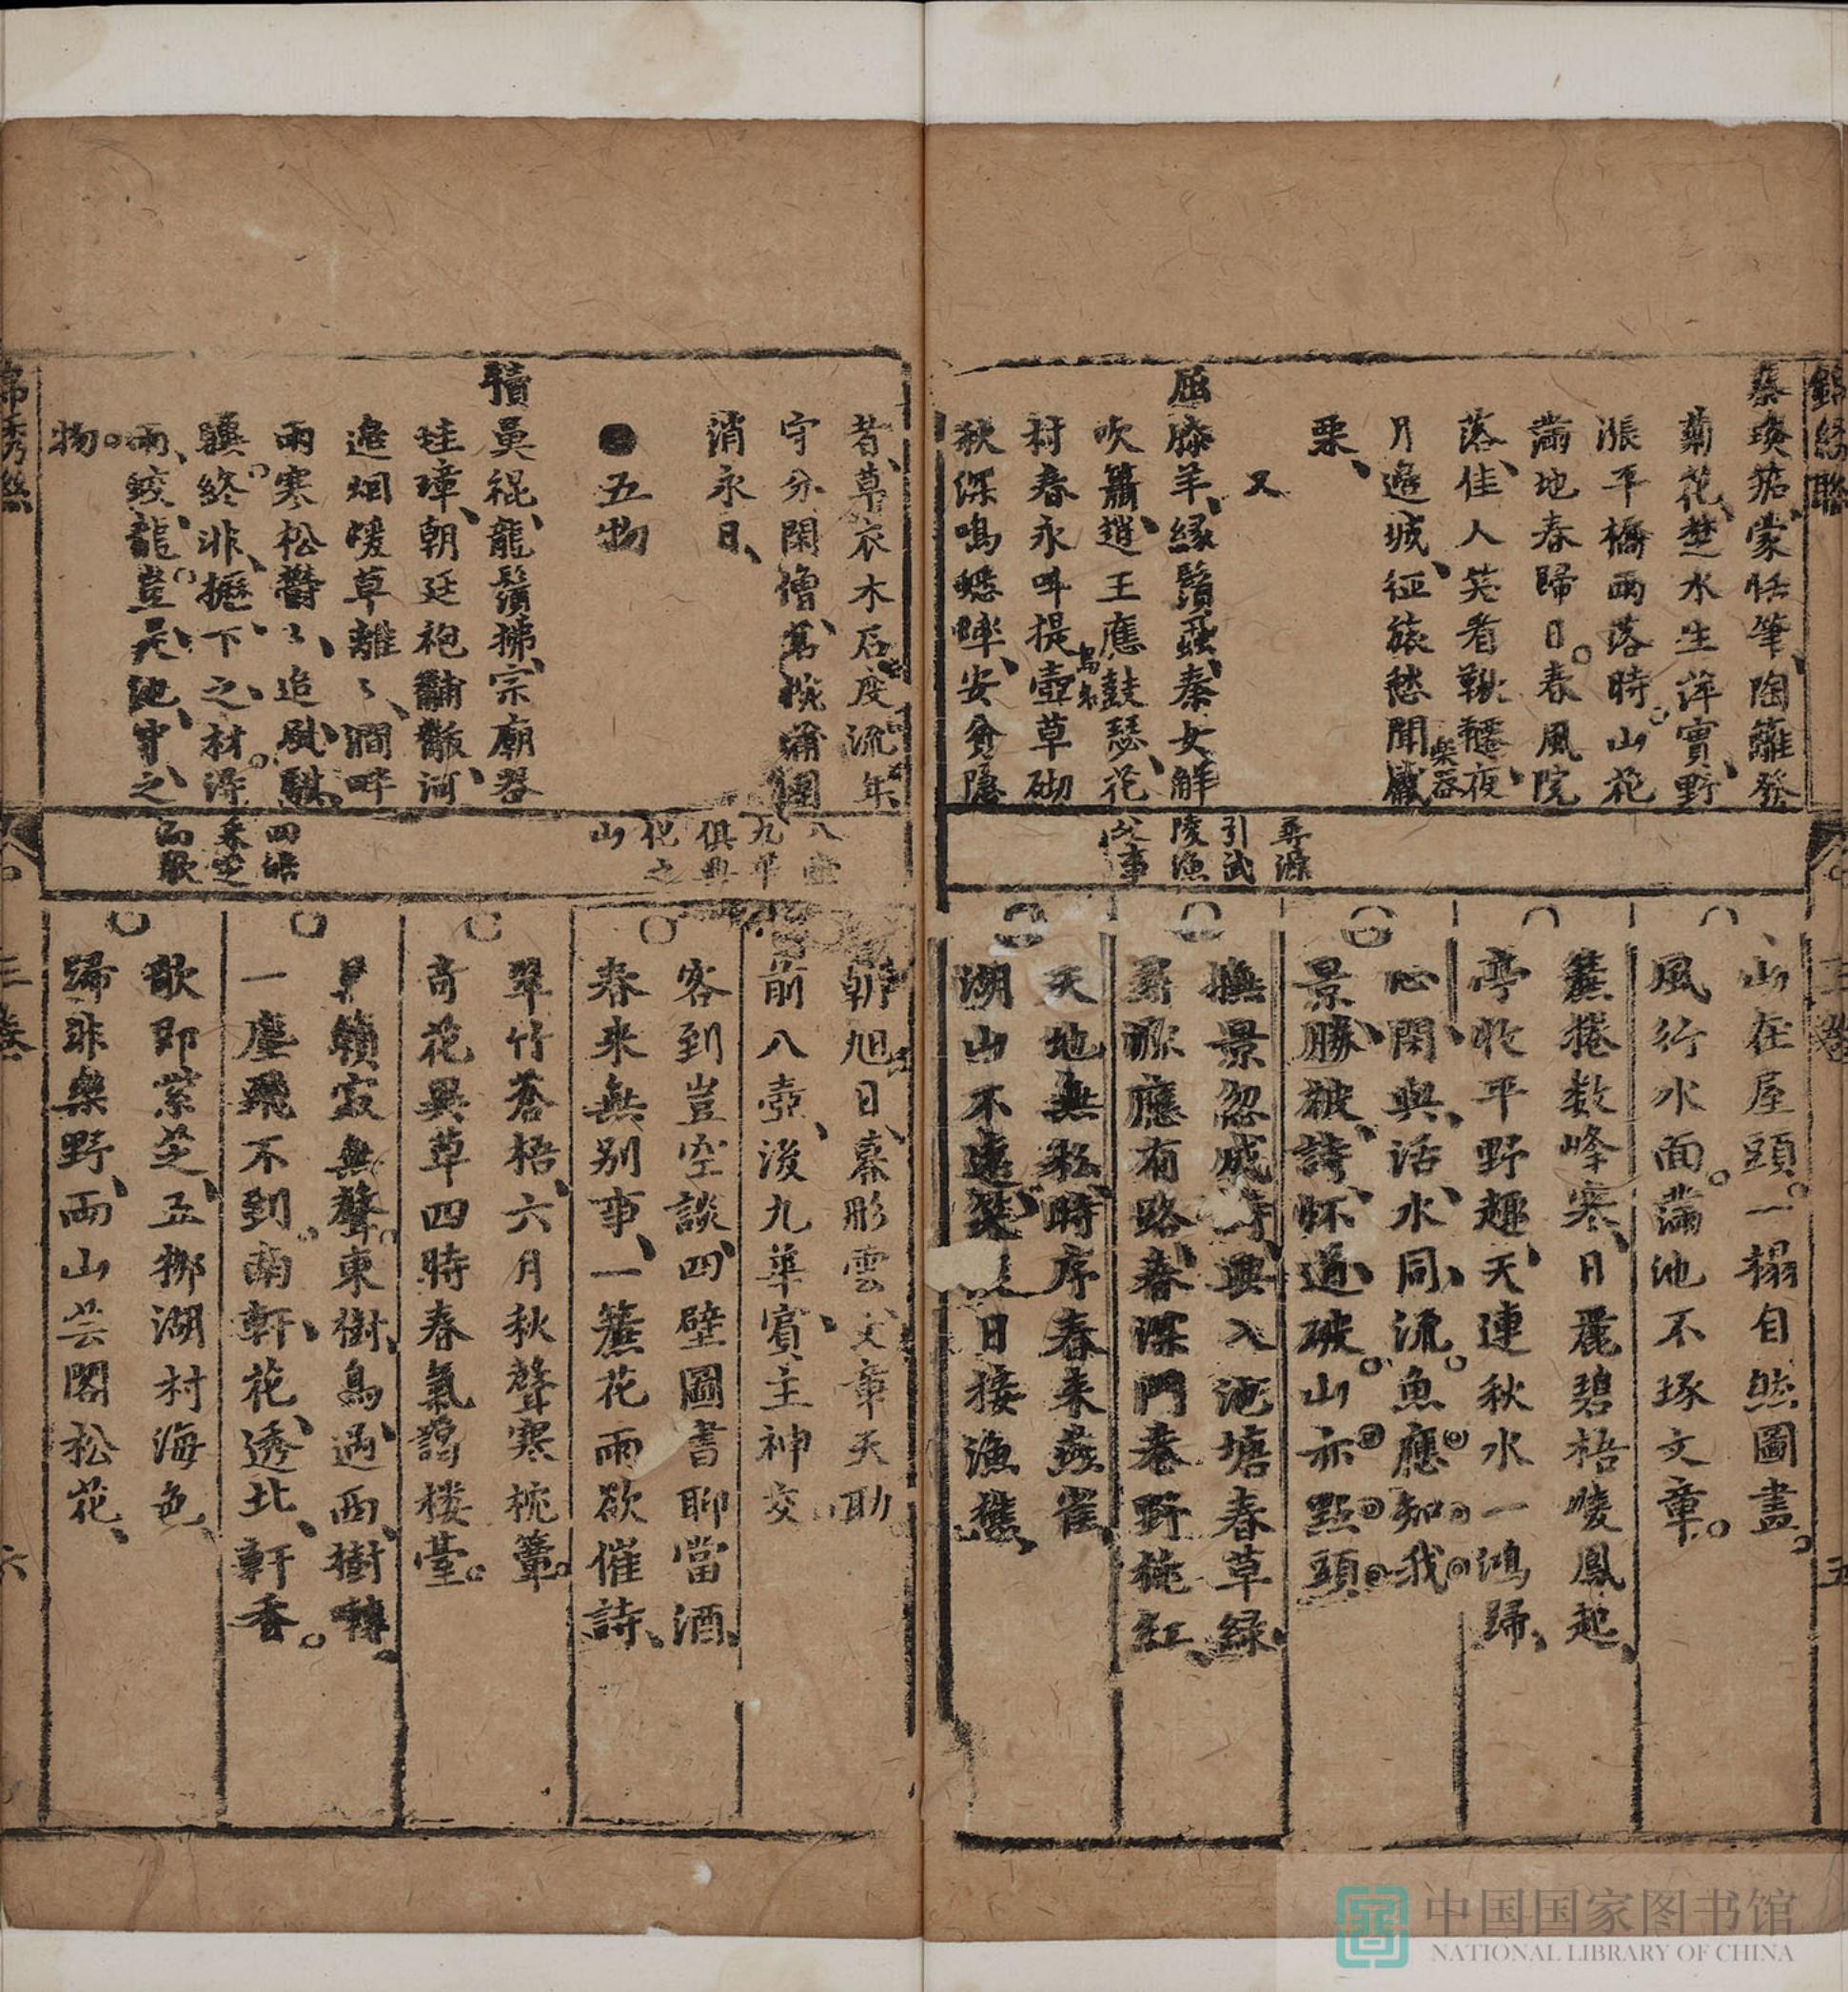 錦綉聯
三卷
五
蔡琰笳蒙恬筆陶籬發
菊花楚水生萍實野
漲平橋雨落時山花
滿地春歸日春風院
落佳人笑看鞦韆夜
月邊城征旅愁聞觱
樂器
栗
又
屈膝羊緣鬚蝨秦女解
吹簫趙王應鼓瑟花
村春永呌提壺草砌
鳥名
秋深鳴蟋蟀安貧隱
尋源
引武
陵漁
父事
山在屋頭一榻自然圖畫
風行水面滿池不琢文章
簾捲数峰寒日麗碧梧晙鳳起
亭收平野趣天連秋水一鴻歸
心閑與活水同流魚應知我
景勝被詩怀道破山亦點頭
撫景忽成詩興入池塘春草绿
尋源應有路春深門巷野桃紅
天地無私時序春来燕雀
湖山不遠笑日接漁樵
者草衣木石度流年
守分閑僧蒿椀蒲團
消永日
五物
犢鼻裩龍鬚拂宗廟器
珪璋朝廷袍黼黻河
邊烟暖草離〻澗畔
雨寒松欝〻追騏驥
驥終非櫪下之材得
雨蛟龍豈是池中之
物
八壺
九華
俱興
化之
山
四皓
采芝
而歌
朝旭日幕彤雲文章天助
前八壺後九華賓主神交
客到豈空談四壁圖書聊當酒
春来無别事一簾花雨欲催詩
翠竹蒼梧六月秋聲寒枕簟
奇花異草四時春氣靄楼臺
籟寂無聲東樹鳥過西樹轉
一塵飛不到南軒花透北軒香
歌即紫芝五柳湖村海色
歸非樂野两山芸閣松花
三卷
六
中国国家图书馆
NATIONAL LIBRARY OF CHINA